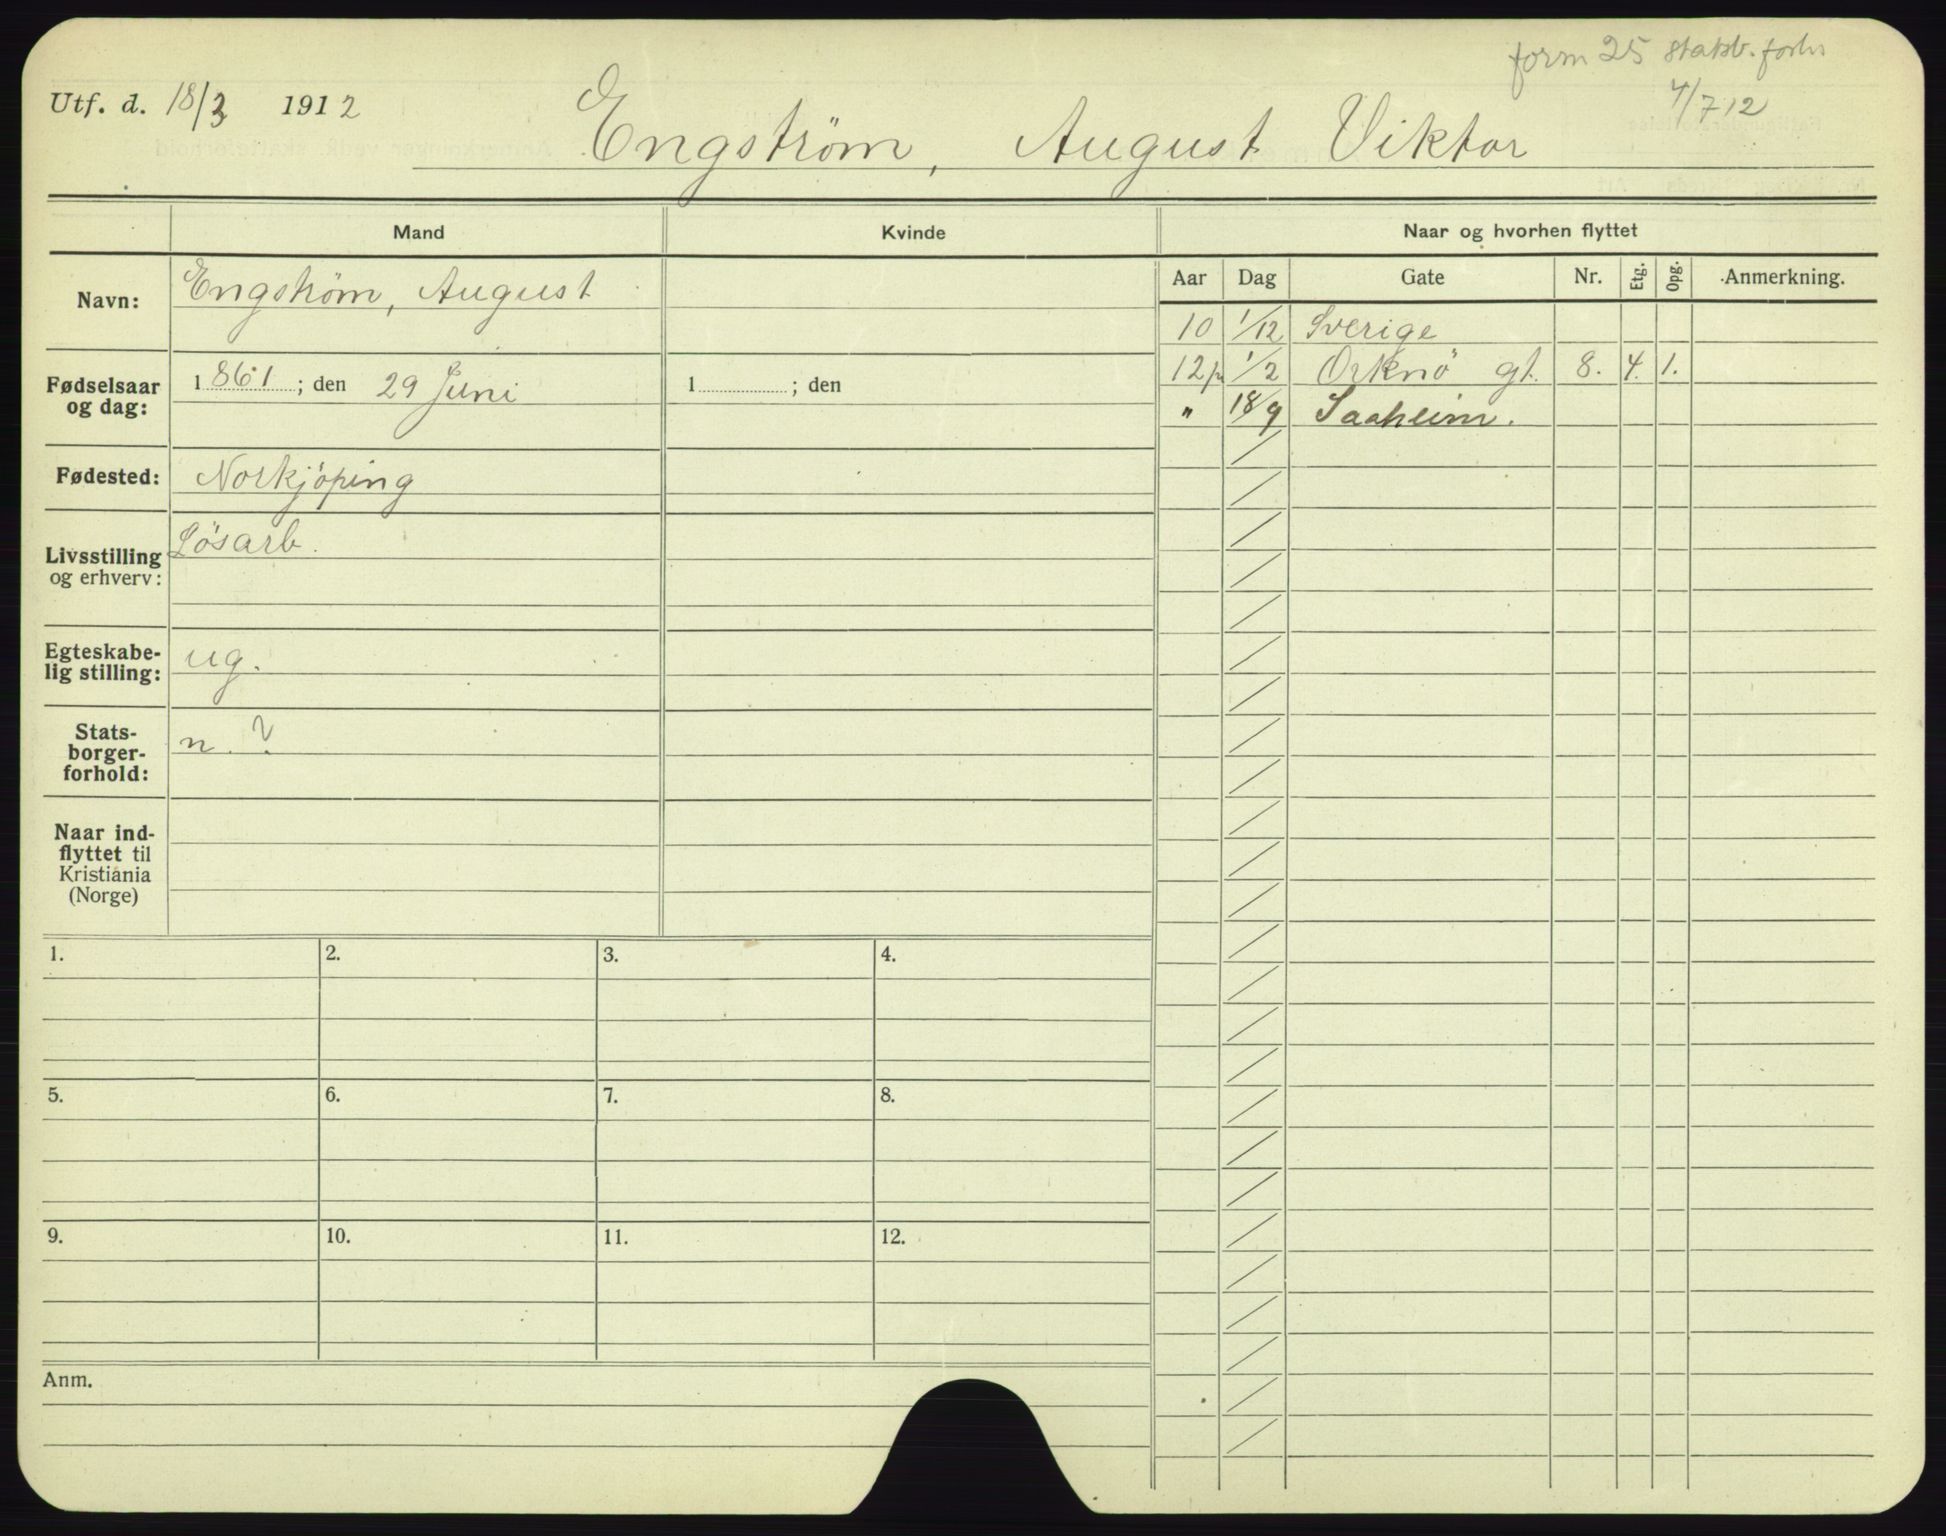 form 25 statsb. forh
4/7 12
Utf. d. 18/3 1912
Engström, August Viktor
Mand Kvinde Naar og hvorhen flyttet
Aar Dag Gate Nr. Etg. Opg. Anmerkning.
Navn: Engström, August
10 1/12 Sverige
12 1/2 Orknö gt. 8. 4. 1.
" 18/9 Saaheim.
Fødselsaar og dag: 1861; den 29 Juni 1 ; den
Fødested: Norkjöping
Livsstilling og erhverv: Lösarb.
Egteskabe-
lig stilling: ug.
Stats-
borger-
forhold: n. ?
Naar ind-
flyttet til
Kristiania
(Norge)
1. 2. 3. 4.
5. 6. 7. 8.
9. 10. 11. 12.
Anm.